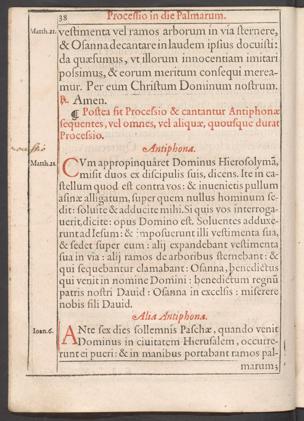 38 Processio in die Palmarum.
Matth.21. vestimenta vel ramos arborum in via sternere,
& Osanna decantare in laudem ipsius docuisti:
da quæsumus, vt illorum innocentiam imitari
possimus, & eorum meritum consequi merea-
mur. Per eum Christum Dominum nostrum.
℟. Amen.
¶ Postea fit Processio & cantantur Antiphonæ
sequentes, vel omnes, vel aliquæ, quousque durat
Processio.
Antiphona.
Matth.21. CVm appropinquaret Dominus Hierosolymã,
misit duos ex discipulis suis, dicens. Ite in ca-
stellum quod est contra vos: & inuenietis pullum
asinæ alligatum, super quem nullus hominum se-
dit: soluite & adducite mihi. Si quis vos interroga-
uerit, dicite: opus Domino est. Soluentes adduxe-
runt ad Iesum: & imposuerunt illi vestimenta sua,
& sedet super eum: alij expandebant vestimenta
sua in via: alij ramos de arboribus sternebant: &
qui sequebantur clamabant: Osanna, benedictus
qui venit in nomine Domini: benedictum regnũ
patris nostri Dauid: Osanna in excelsis: miserere
nobis fili Dauid.
Alia Antiphona.
Ioan.6. ANte sex dies sollemnis Paschæ, quando venit
Dominus in ciuitatem Hierusalem, occurre-
runt ei pueri: & in manibus portabant ramos pal-
marum;